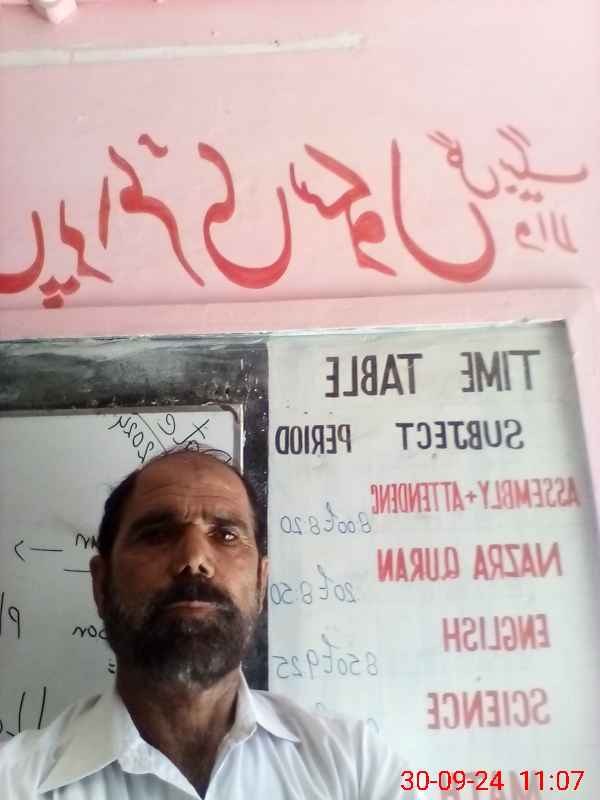 پرائمری سکول گل بیگ والا
TIME TABLE
SUBJECT PERIOD
ASSEMBLY + ATTENDENC 8:00 to 8:20
NAZRA QURAN 20 to 8:50
ENGLISH 8:50 to 9:25
SCIENCE
2024
30-09-24 11:07